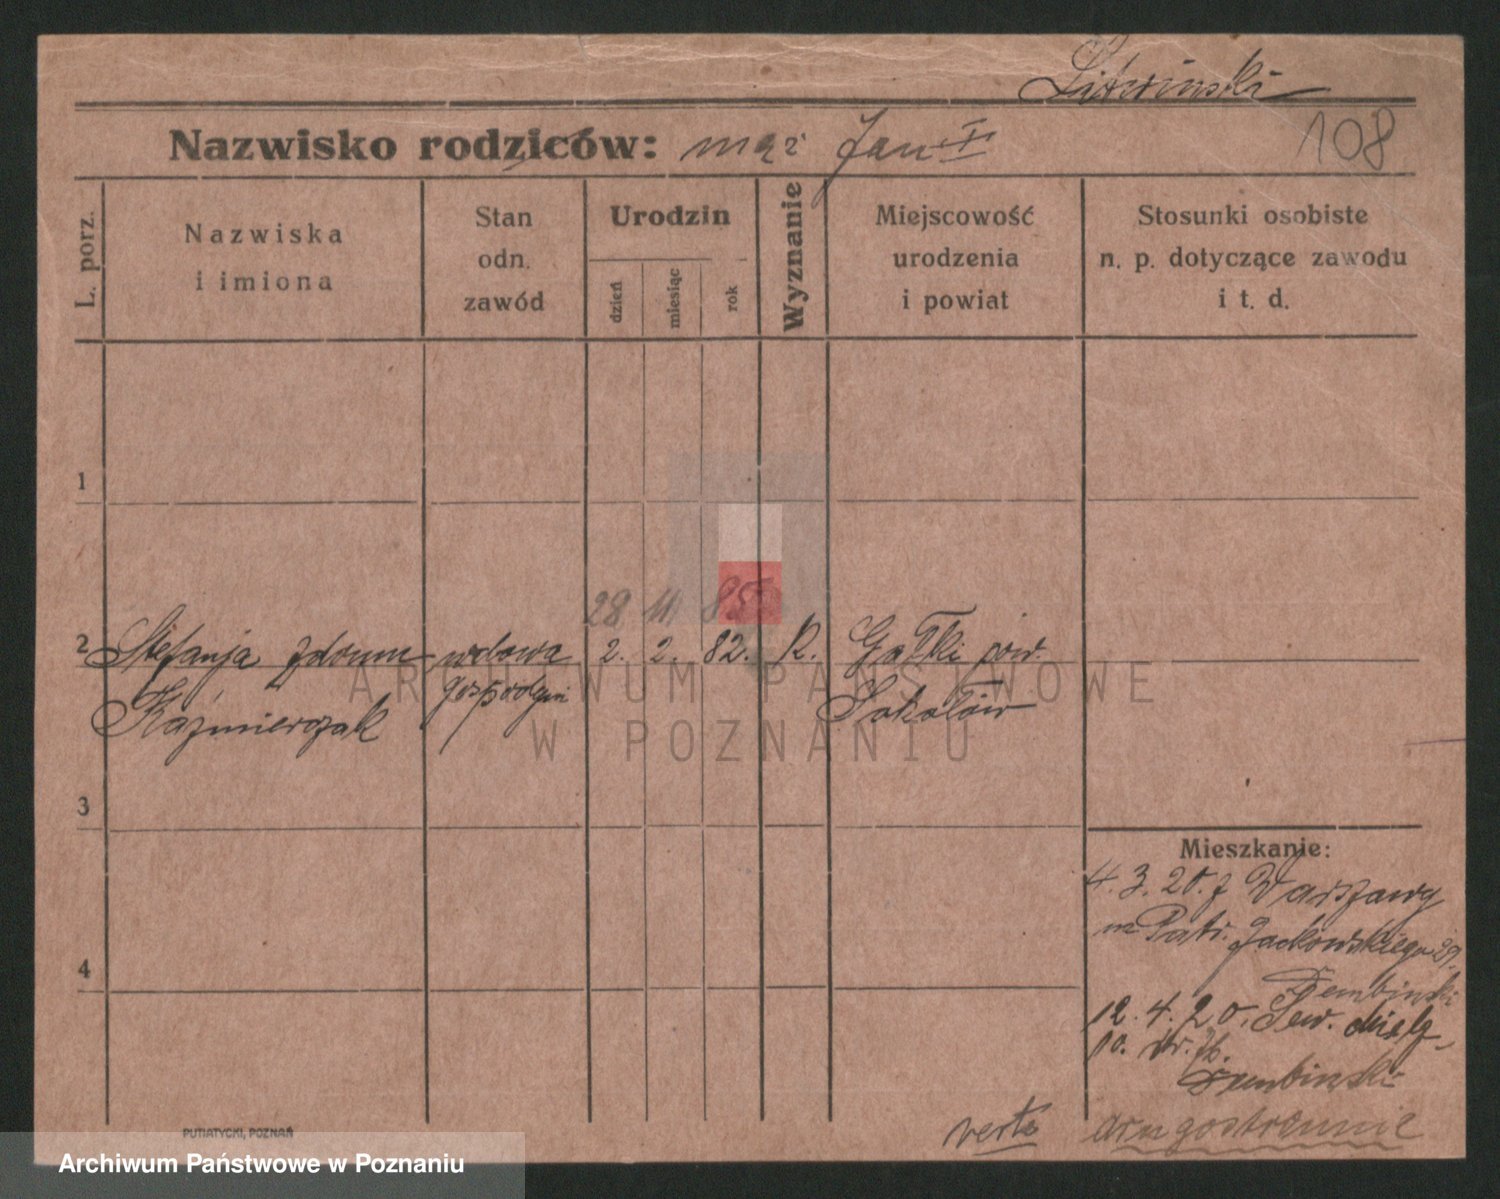 Litwinski
108
Nazwisko rodziców: mąż Jan I
L. porz.
Nazwiska
i imiona
Stan
odn.
zawód
Urodzin
dzień
miesiąc
rok
Wyznanie
Miejscowość
urodzenia
i powiat
Stosunki osobiste
n. p. dotyczące zawodu
i t. d.
1
28 11 85
2 Stefanja zdomu wdowa 2. 2. 82. R. Gałki pow.
Kaźmierczak gospodyni Sokołów
3
4
Mieszkanie:
4. 3. 20. z Warszawy
Patr. Jackowskiego 29
Dembinski
12. 4. 20. Sew. Mielż.
10.
Dembinski
verte
drugostronnie
PUTIATYCKI, POZNAŃ
ARCHIWUM PAŃSTWOWE
W POZNANIU
Archiwum Państwowe w Poznaniu